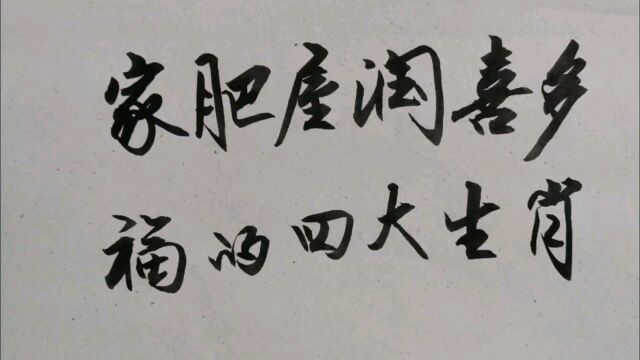 家肥屋润喜多
福的四大生肖